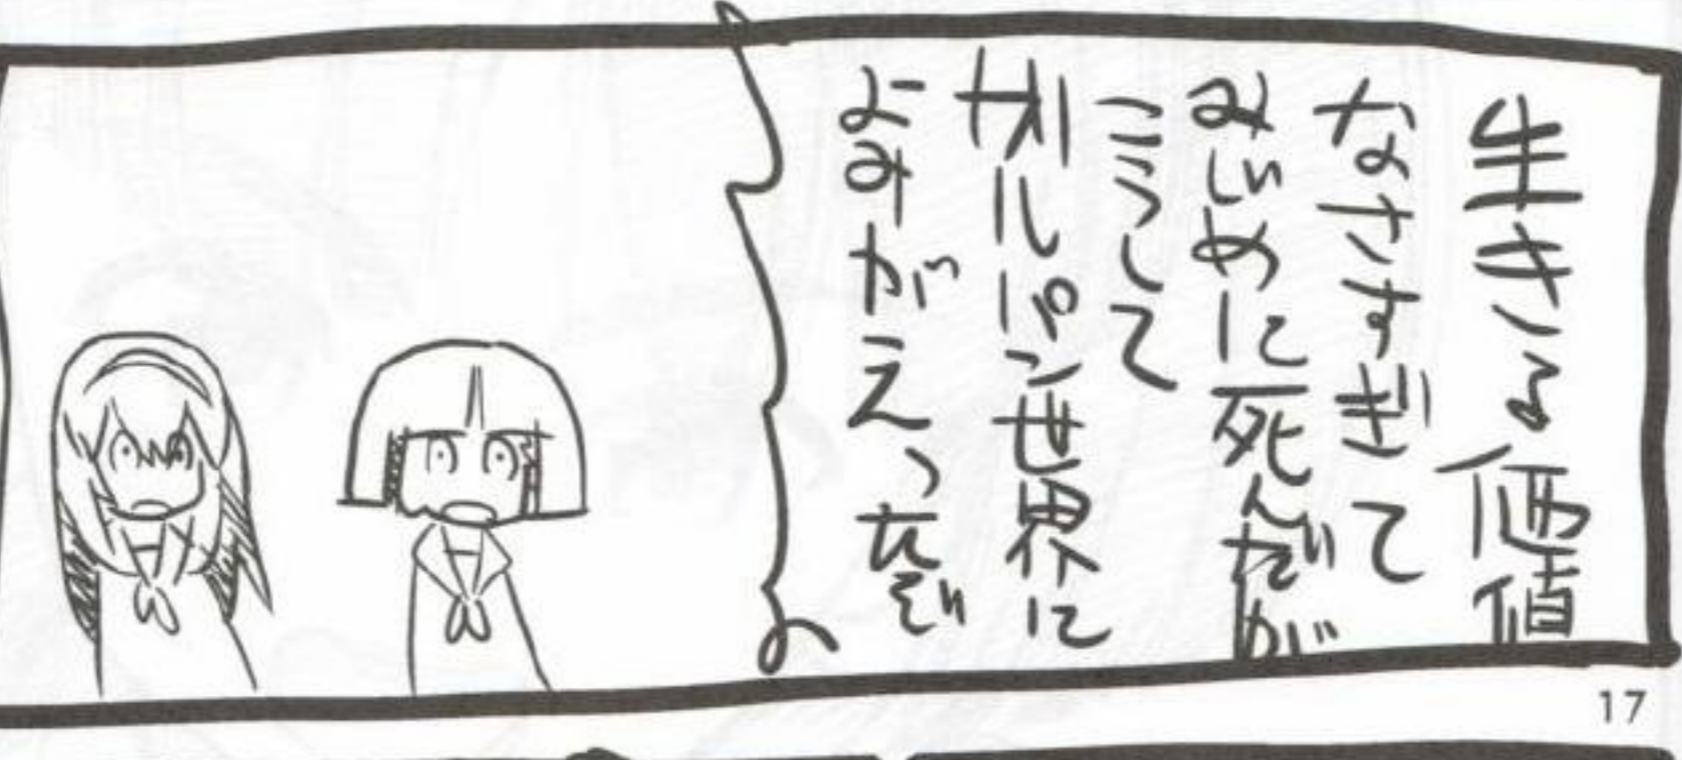 生きる価値
なさすぎて
みじめに死んだが
こうして
ガルパン世界に
よみがえったぞ
17